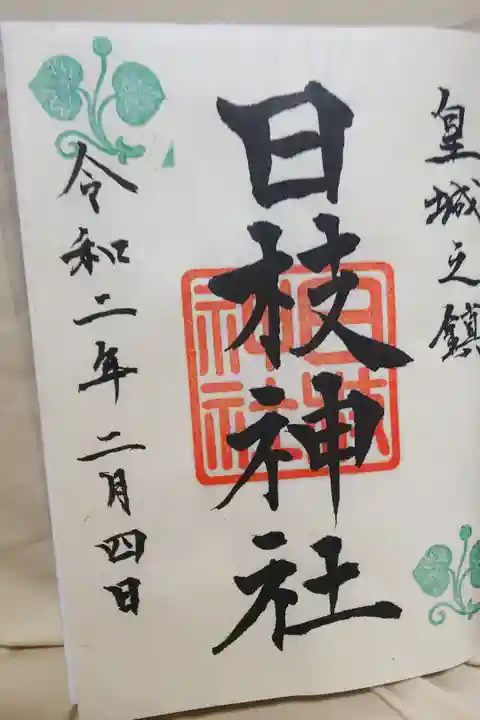 皇城之鎮
日枝神社
日枝神社
令和二年二月四日